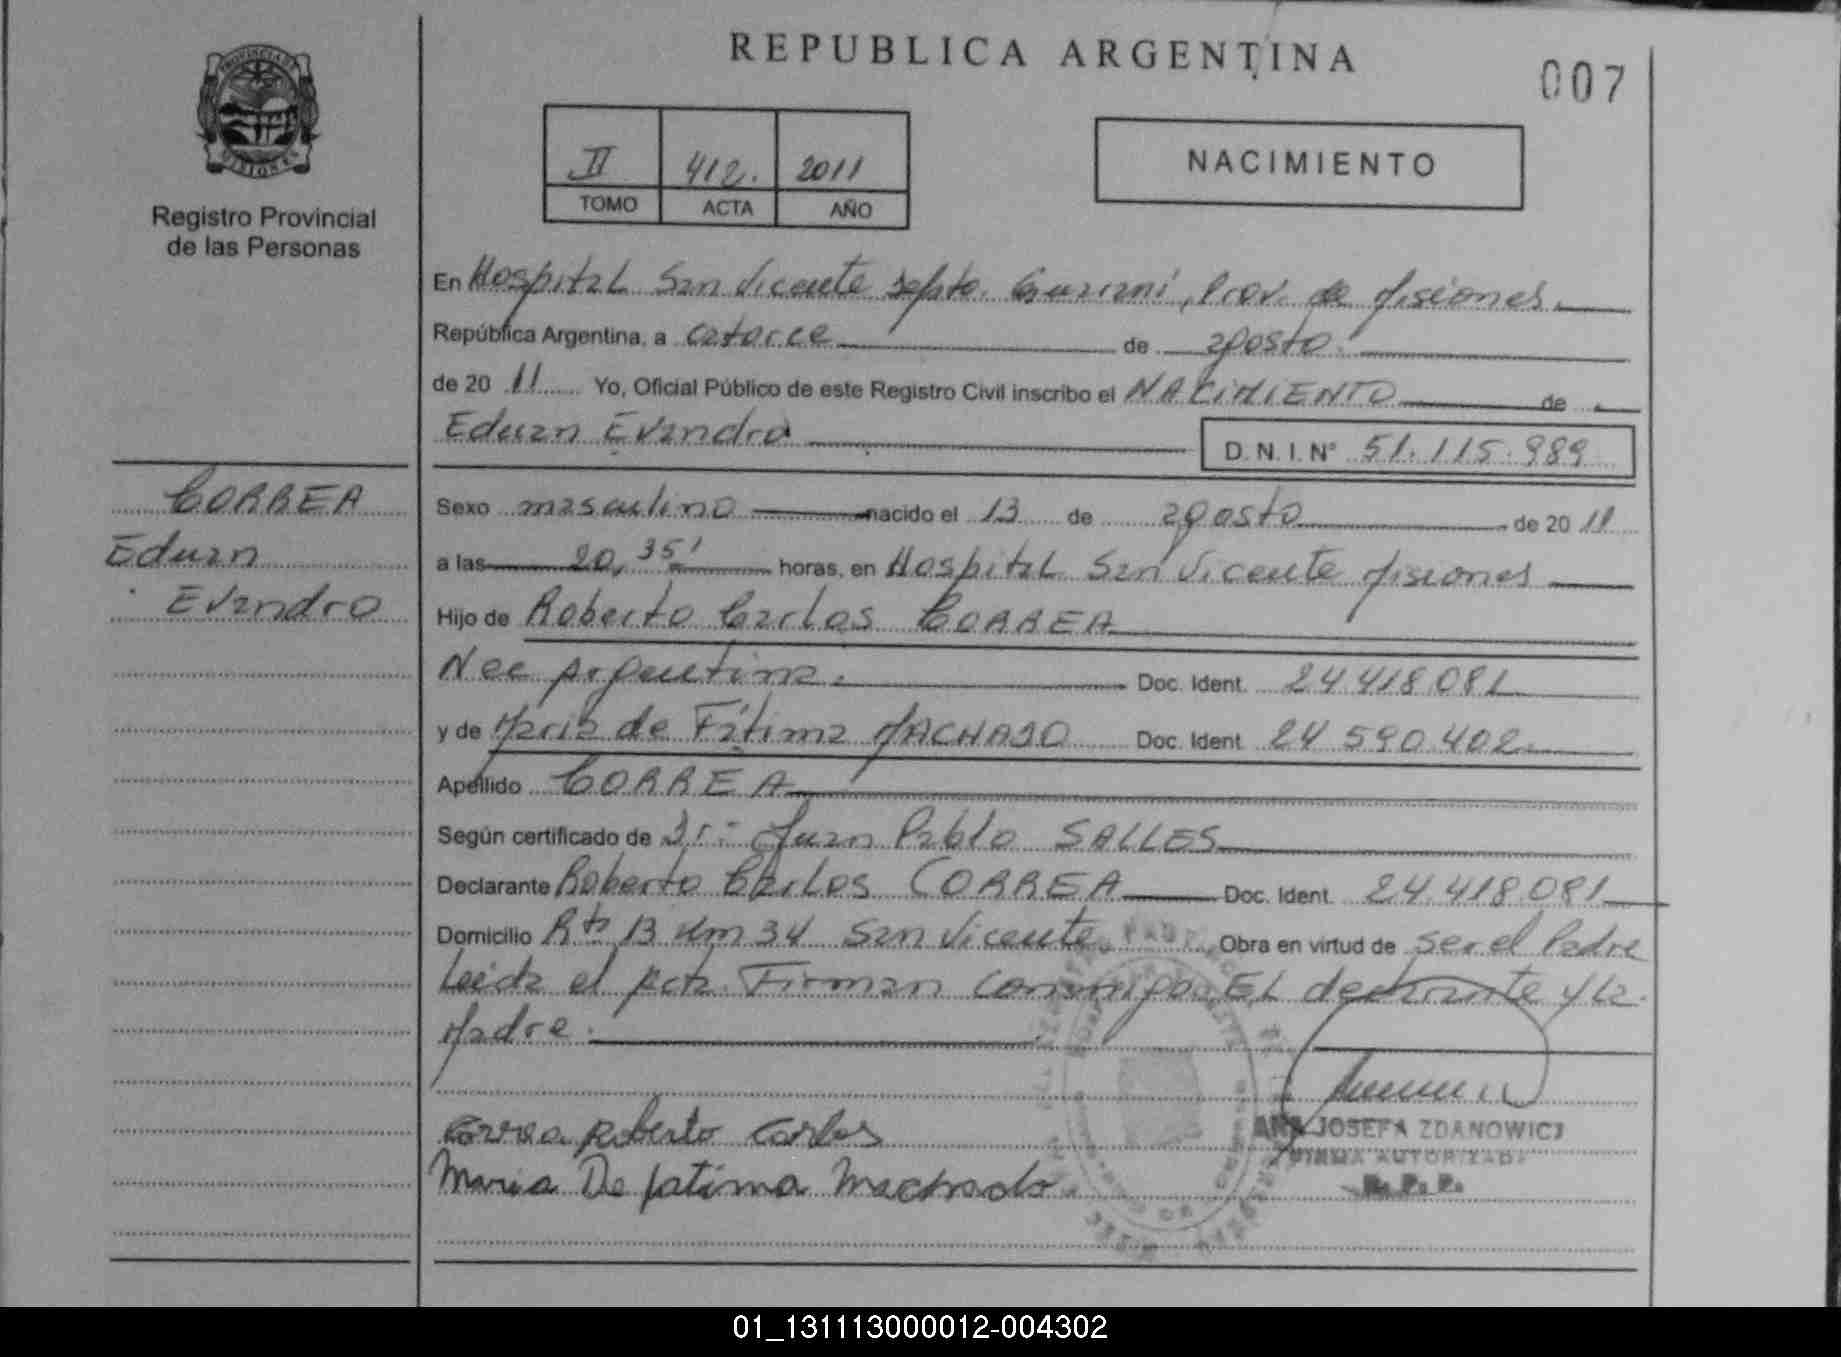 REPUBLICA ARGENTINA
007
PROVINCIA DE MISIONES
Registro Provincial
de las Personas
II 412. 2011
TOMO ACTA AÑO
NACIMIENTO
En Hospital San Vicente Depto. Guarani, Prov. de Misiones.
República Argentina, a catorce de agosto.
de 20 11 Yo, Oficial Público de este Registro Civil inscribo el NACIMIENTO de
Eduan Evandro D. N. I. N° 51.115.989
CORREA
Eduan
Evandro
Sexo masculino nacido el 13 de agosto de 20 11
a las 20,35' horas, en Hospital San Vicente Misiones
Hijo de Roberto Carlos CORREA
Nac Argentina. Doc. Ident. 24.418.081
y de Maria de Fátima MACHADO Doc. Ident. 24.590.402
Apellido CORREA
Según certificado de Dr: Juan Pablo SALLES
Declarante Roberto Carlos CORREA Doc. Ident. 24.418.081
Domicilio Rta 13 Km 34 San Vicente. Obra en virtud de ser el Padre
Leida el Acta. Firman conmigo EL declarante y la
Madre.
Correa Roberto Carlos
Maria De fatima Machado
ANA JOSEFA ZDANOWICZ
FIRMA AUTORIZADA
R. P. P.
01_131113000012-004302